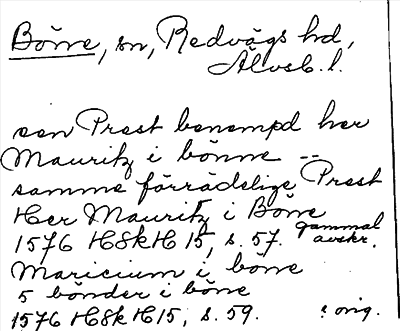 Böne, sn, Redvägs hd,
Älvsb. l.
een Prest benempd her
Mauritz i bönne --
samme förrädelige Prest
Her Mauritz i Böne
1576 HSkH 15, s. 57. gammal avskr.
Maricium i böne
5 bönder i böne
1576 HSk H15, s. 59. orig.